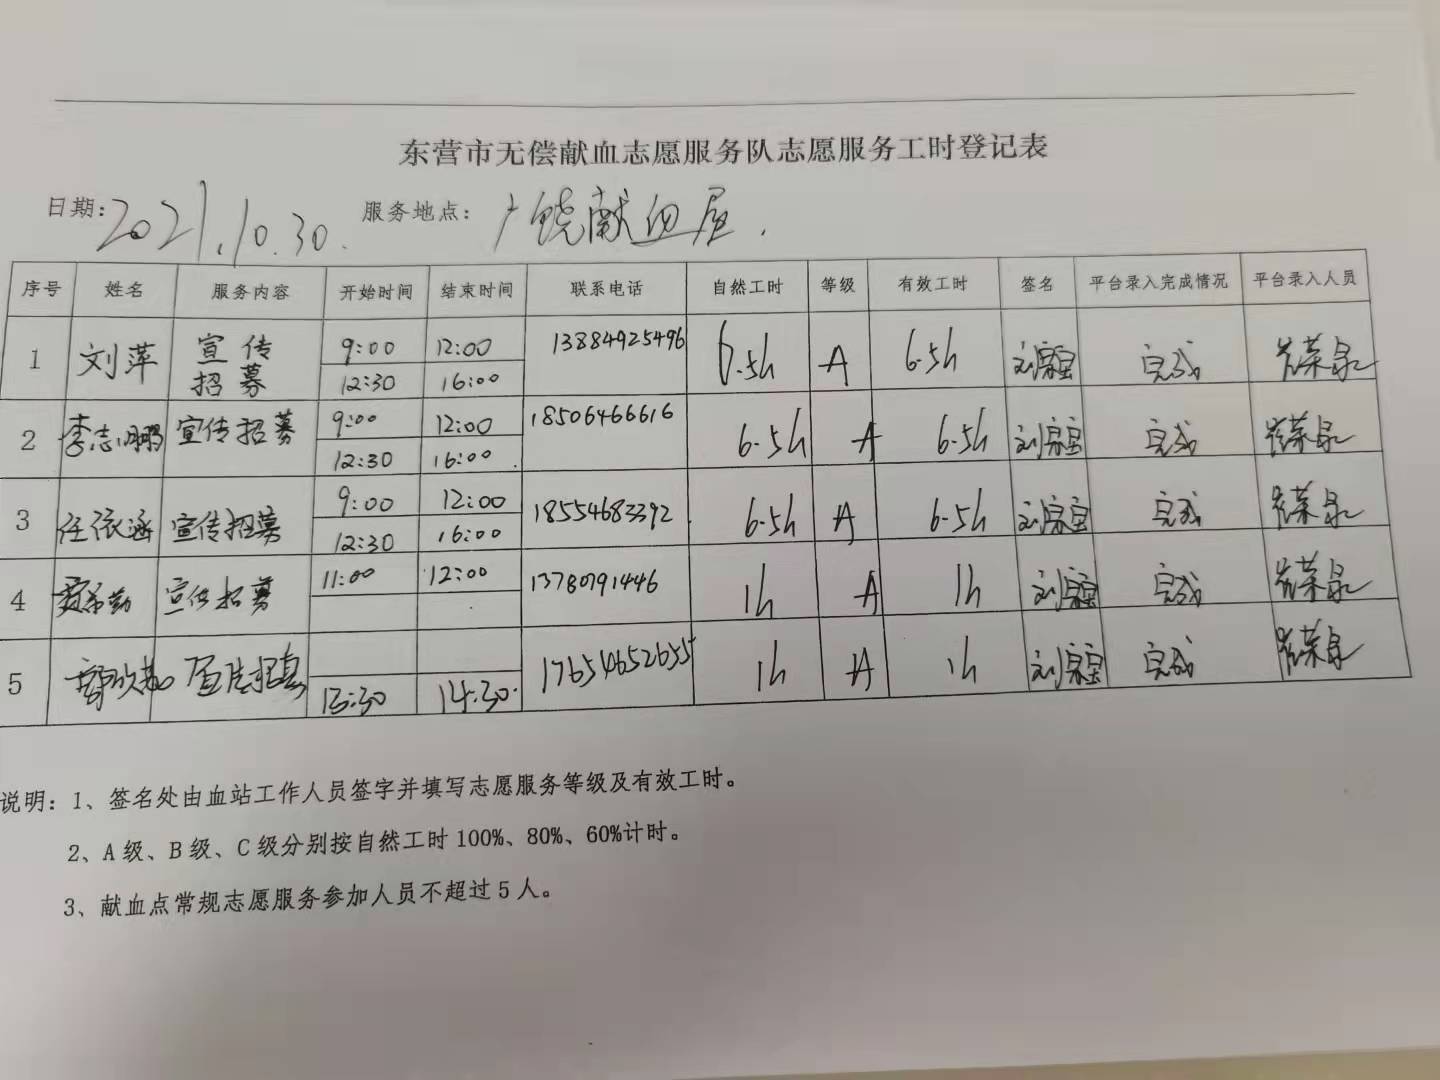 东营市无偿献血志愿服务队志愿服务工时登记表
日期：2021.10.30. 服务地点：广饶献血屋.
序号 姓名 服务内容 开始时间 结束时间 联系电话 自然工时 等级 有效工时 签名 平台录入完成情况 平台录入人员
1 刘萍 宣传招募 9:00 12:00 13884925496 6.5h A 6.5h 完成
12:30 16:00
2 李志鹏 宣传招募 9:00 12:00 18506466616 6.5h A 6.5h 完成
12:30 16:00.
3 任依涵 宣传招募 9:00 12:00 18554683392 6.5h A 6.5h 完成
12:30 16:00
4 宣传招募 11:00 12:00 13780791446 1h A 1h 完成
5 宣传招募 17654652655 1h A 1h 完成
13:30 14:30.
说明：1、签名处由血站工作人员签字并填写志愿服务等级及有效工时。
2、A级、B级、C级分别按自然工时100%、80%、60%计时。
3、献血点常规志愿服务参加人员不超过5人。